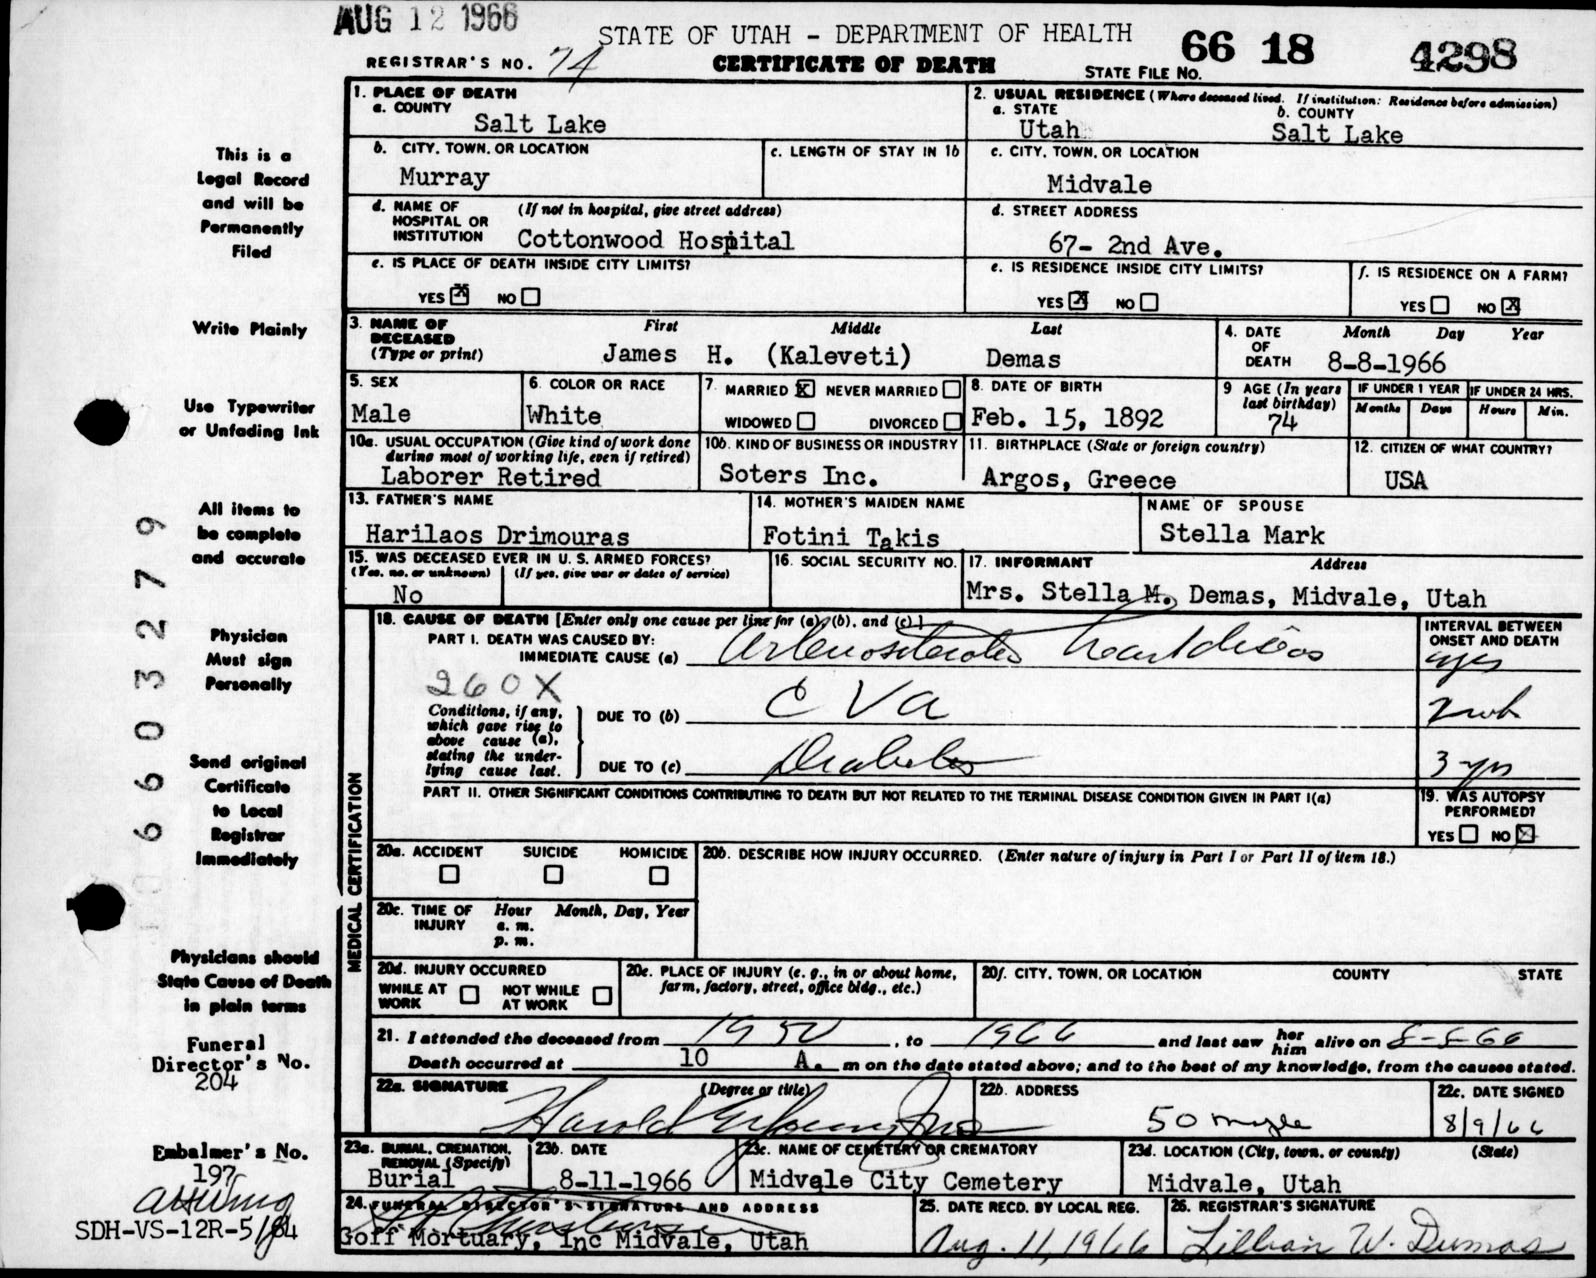 AUG 12 1966
STATE OF UTAH - DEPARTMENT OF HEALTH
66 18 4298
REGISTRAR'S NO. 74
CERTIFICATE OF DEATH
STATE FILE NO.
1. PLACE OF DEATH
a. COUNTY
Salt Lake
2. USUAL RESIDENCE (Where deceased lived. If institution: Residence before admission)
a. STATE b. COUNTY
Utah Salt Lake
b. CITY, TOWN, OR LOCATION
Murray
c. LENGTH OF STAY IN 1b
c. CITY, TOWN, OR LOCATION
Midvale
d. NAME OF HOSPITAL OR INSTITUTION (If not in hospital, give street address)
Cottonwood Hospital
d. STREET ADDRESS
67- 2nd Ave.
e. IS PLACE OF DEATH INSIDE CITY LIMITS?
YES X NO
e. IS RESIDENCE INSIDE CITY LIMITS?
YES X NO
f. IS RESIDENCE ON A FARM?
YES NO X
3. NAME OF DECEASED (Type or print)
First Middle Last
James H. (Kaleveti) Demas
4. DATE OF DEATH Month Day Year
8-8-1966
5. SEX
Male
6. COLOR OR RACE
White
7. MARRIED X NEVER MARRIED
WIDOWED DIVORCED
8. DATE OF BIRTH
Feb. 15, 1892
9 AGE (In years last birthday)
74
IF UNDER 1 YEAR IF UNDER 24 HRS.
Months Days Hours Min.
10a. USUAL OCCUPATION (Give kind of work done during most of working life, even if retired)
Laborer Retired
10b. KIND OF BUSINESS OR INDUSTRY
Soters Inc.
11. BIRTHPLACE (State or foreign country)
Argos, Greece
12. CITIZEN OF WHAT COUNTRY?
USA
13. FATHER'S NAME
Harilaos Drimouras
14. MOTHER'S MAIDEN NAME
Fotini Takis
NAME OF SPOUSE
Stella Mark
15. WAS DECEASED EVER IN U. S. ARMED FORCES?
(Yes, no, or unknown) (If yes, give war or dates of service)
No
16. SOCIAL SECURITY NO.
17. INFORMANT Address
Mrs. Stella M. Demas, Midvale, Utah
MEDICAL CERTIFICATION
18. CAUSE OF DEATH [Enter only one cause per line for (a), (b), and (c).]
PART I. DEATH WAS CAUSED BY:
IMMEDIATE CAUSE (a) heart
INTERVAL BETWEEN ONSET AND DEATH
yrs
260X
Conditions, if any, which gave rise to above cause (a), stating the underlying cause last.
DUE TO (b) CVA
DUE TO (c) Diabetes 3 yrs
PART II. OTHER SIGNIFICANT CONDITIONS CONTRIBUTING TO DEATH BUT NOT RELATED TO THE TERMINAL DISEASE CONDITION GIVEN IN PART I(a)
19. WAS AUTOPSY PERFORMED?
YES NO X
20a. ACCIDENT SUICIDE HOMICIDE
20b. DESCRIBE HOW INJURY OCCURRED. (Enter nature of injury in Part I or Part II of item 18.)
20c. TIME OF INJURY Hour Month, Day, Year
a. m.
p. m.
20d. INJURY OCCURRED
WHILE AT WORK NOT WHILE AT WORK
20e. PLACE OF INJURY (e. g., in or about home, farm, factory, street, office bldg., etc.)
20f. CITY, TOWN, OR LOCATION COUNTY STATE
21. I attended the deceased from 1950, to 1966 and last saw her him alive on 8-8-66
Death occurred at 10 A. m on the date stated above; and to the best of my knowledge, from the causes stated.
22a. SIGNATURE (Degree or title)
Harold
22b. ADDRESS
50
22c. DATE SIGNED
8/9/66
23a. BURIAL, CREMATION, REMOVAL (Specify)
Burial
23b. DATE
8-11-1966
23c. NAME OF CEMETERY OR CREMATORY
Midvale City Cemetery
23d. LOCATION (City, town, or county) (State)
Midvale, Utah
24. FUNERAL DIRECTOR'S SIGNATURE AND ADDRESS
Goff Mortuary, Inc Midvale, Utah
25. DATE RECD. BY LOCAL REG.
Aug. 11, 1966
26. REGISTRAR'S SIGNATURE
Lillian W. Dumas
This is a
Legal Record
and will be
Permanently
Filed
Write Plainly
Use Typewriter
or Unfading Ink
All items to
be complete
and accurate
Physician
Must sign
Personally
Send original
Certificate
to Local
Registrar
Immediately
Physicians should
State Cause of Death
in plain terms
Funeral
Director's No.
204
Embalmer's No.
197
SDH-VS-12R-5/64
6603279